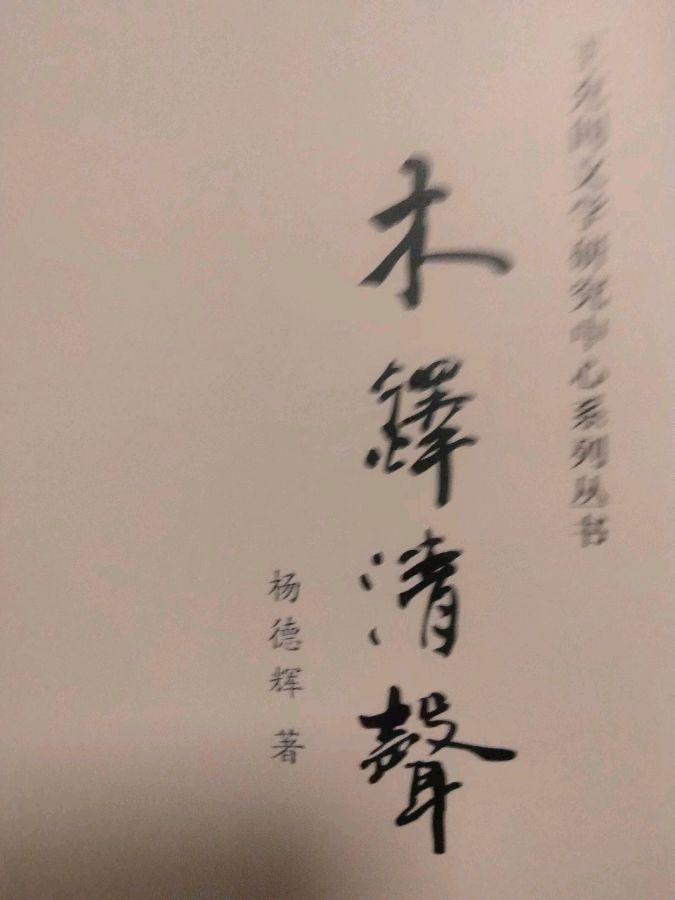 王充闾文学研究中心系列丛书
木鐸清聲
杨德辉 著